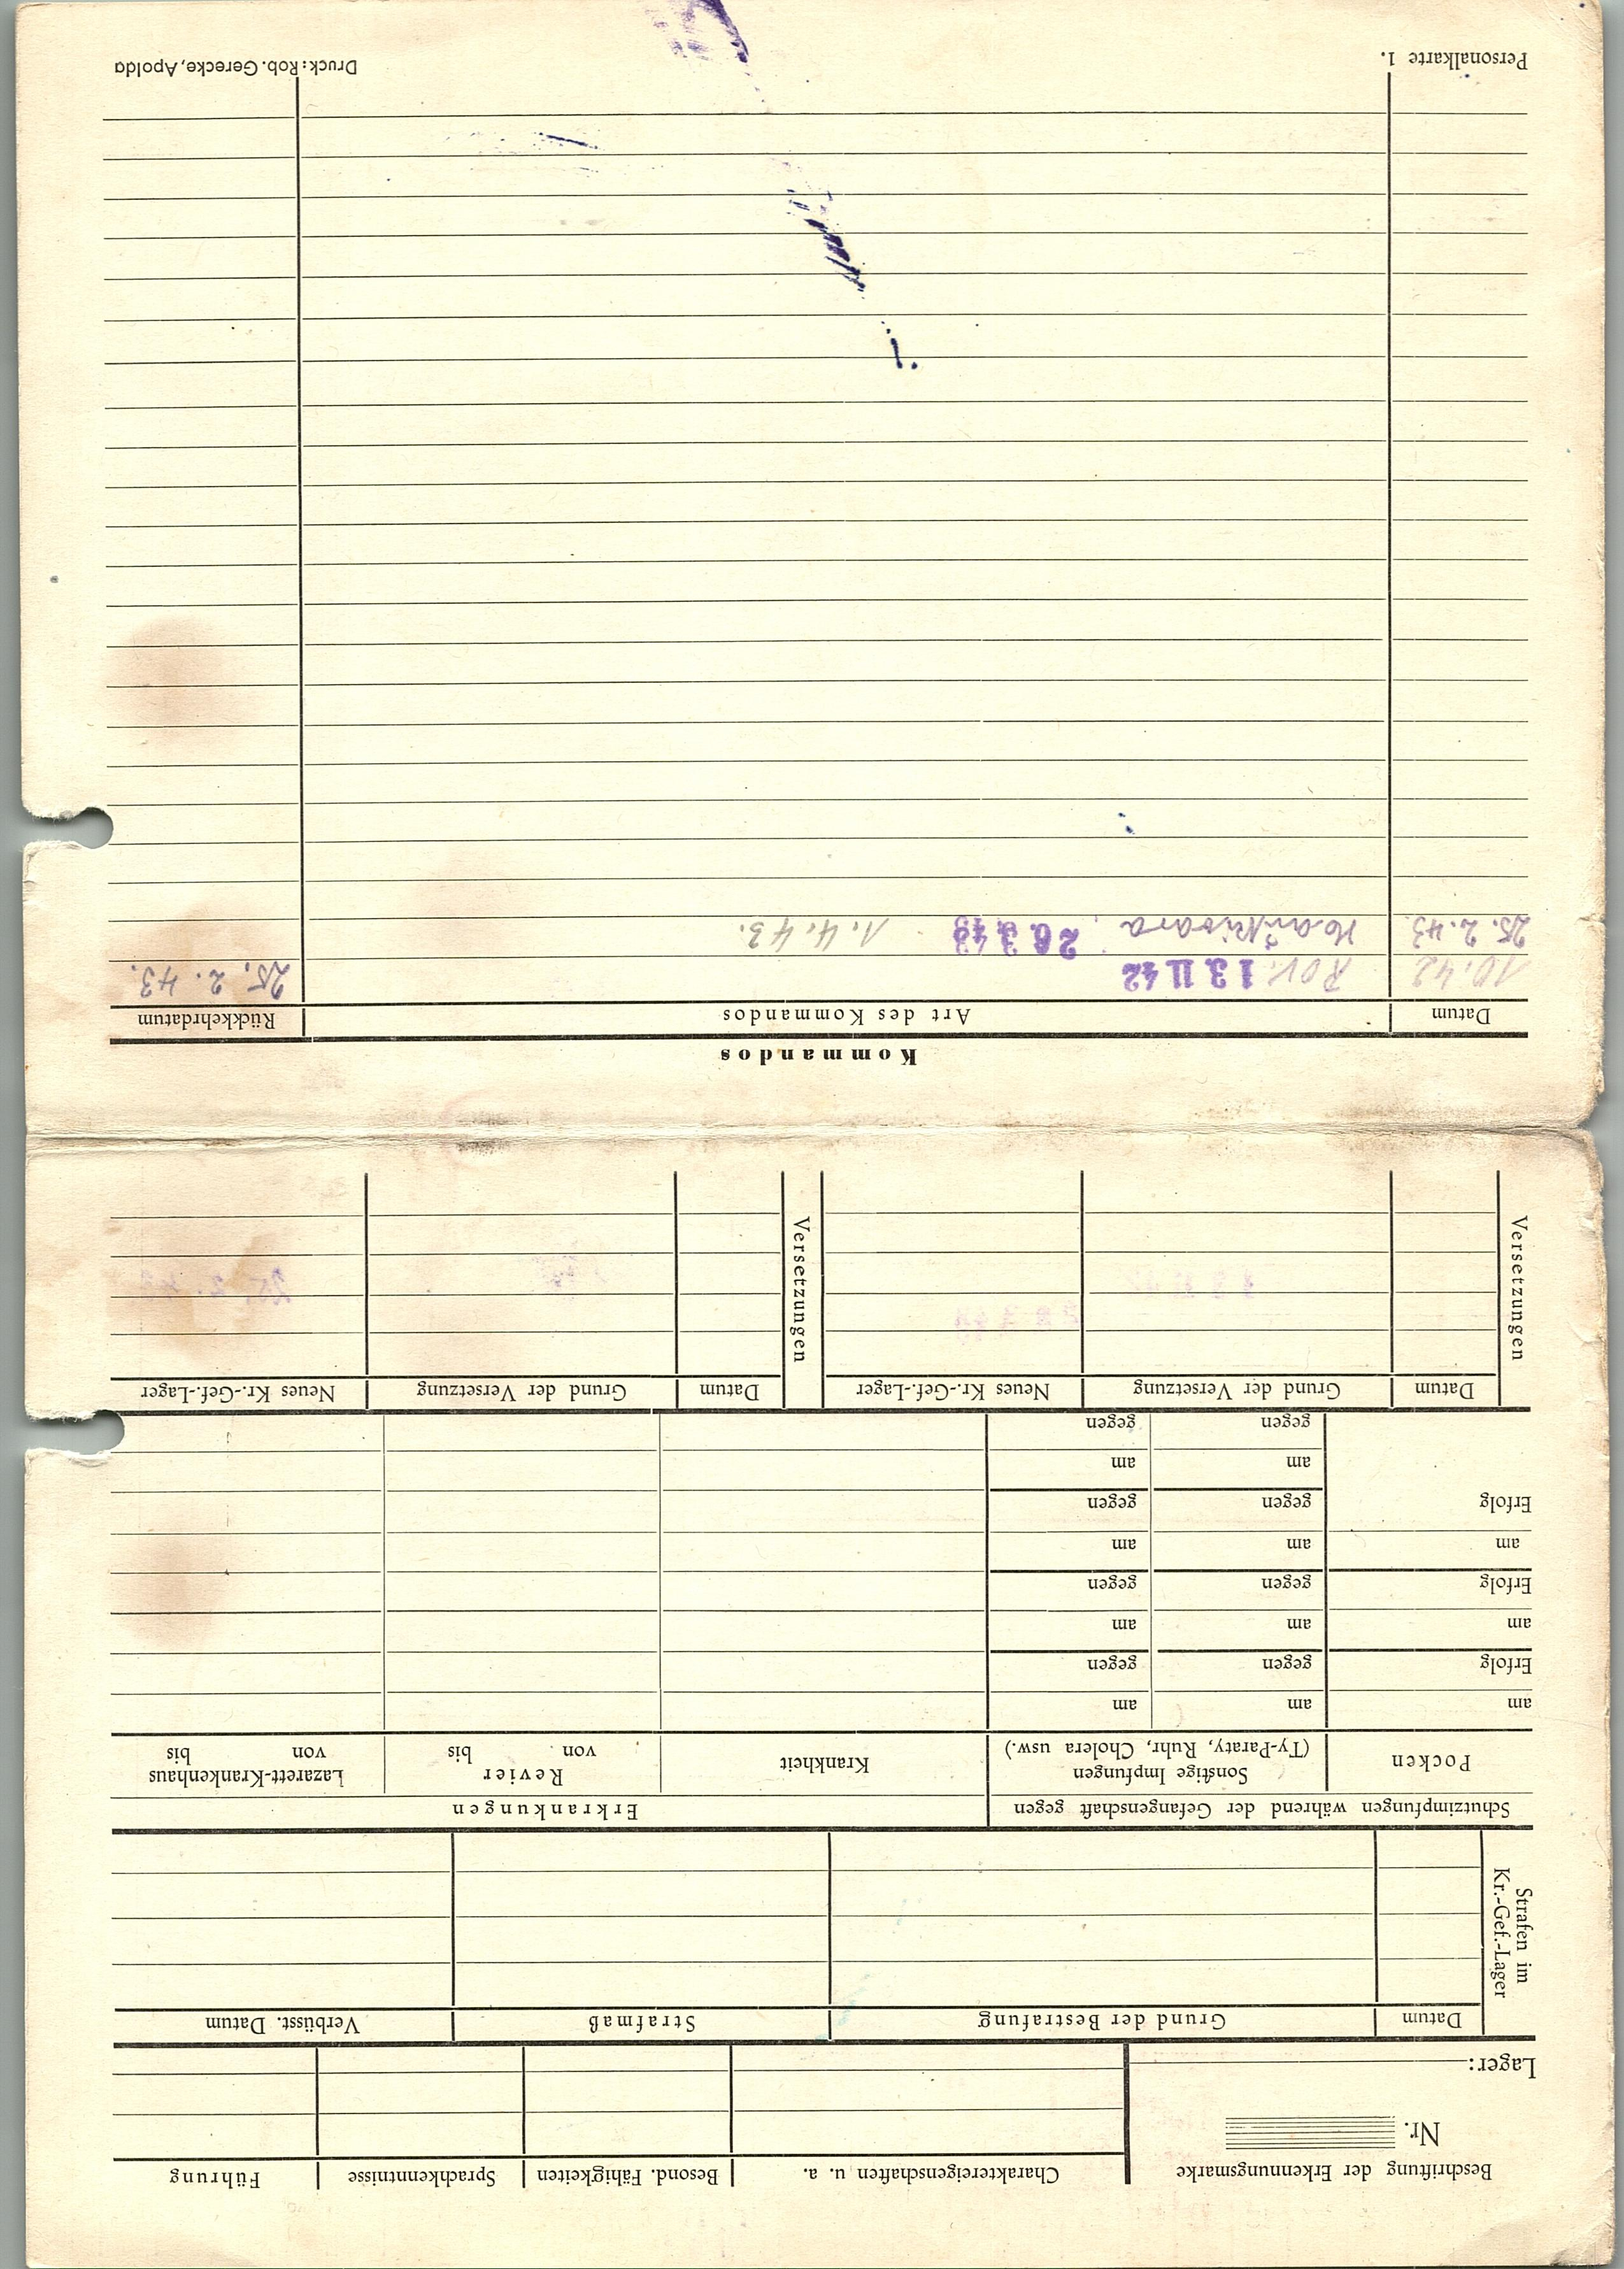 Beschriftung der Erkennungsmarke
Nr.
Lager:
Charaktereigenschaften u. a.
Besond. Fähigkeiten
Sprachkenntnisse
Führung
Strafen im
Kr.-Gef.-Lager
Datum
Grund der Bestrafung
Strafmaß
Verbüsst. Datum
Schutzimpfungen während der Gefangenschaft gegen
Erkrankungen
Pocken
Sonstige Impfungen
(Ty-Paraty, Ruhr, Cholera usw.)
Krankheit
Revier
von bis
Lazarett-Krankenhaus
von bis
am am am
Erfolg gegen gegen
am am am
Erfolg gegen gegen
am am am
Erfolg gegen gegen
am am
gegen gegen
Versetzungen
Datum
Grund der Versetzung
Neues Kr.-Gef.-Lager
Versetzungen
Datum
Grund der Versetzung
Neues Kr.-Gef.-Lager
Kommandos
Datum
Art des Kommandos
Rückkehrdatum
10.42 13 11 42 25. 2. 43.
25. 2. 43. 1. 4. 43.
Personalkarte 1.
Druck: Rob. Gerecke, Apolda